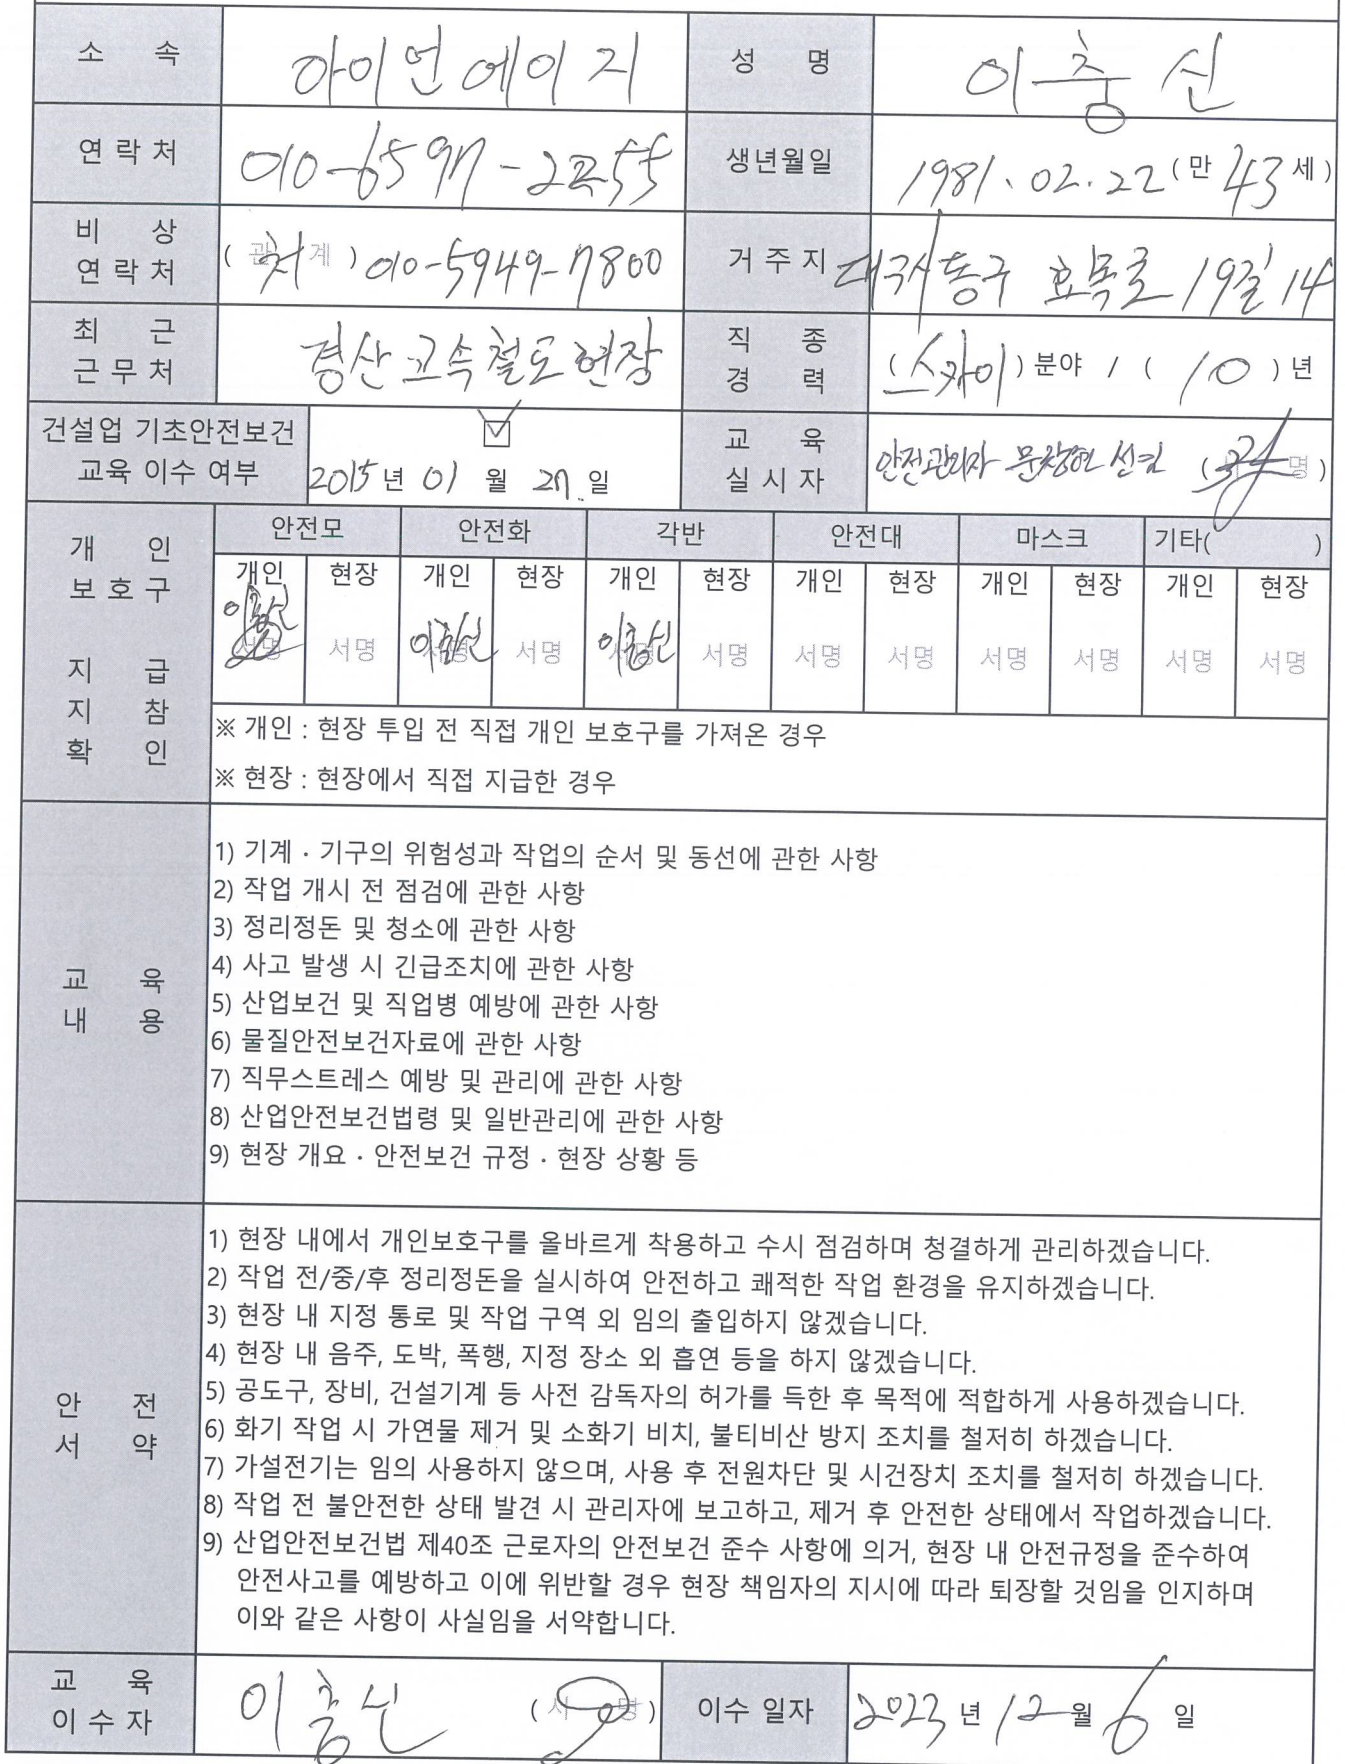 소 속 아이언에이지 성 명 이충신
연락처 010-6597-2255 생년월일 1981. 02. 22 (만 43 세)
비 상
연락처 (관계 처) 010-5949-7800 거주지 대구시 동구 효목로 19길 14
최 근
근무처 경산 고속철도현장 직 종
경 력 (스카이) 분야 / ( 10 ) 년
건설업 기초안전보건
교육 이수 여부 2015 년 01 월 27. 일 교 육
실시자 안전관리자 문창현 선임 (서명)
개 인
보호구
지 급
지 참
확 인
안전모 안전화 각반 안전대 마스크 기타( )
개인 현장 개인 현장 개인 현장 개인 현장 개인 현장 개인 현장
이충신 서명 이충신 서명 이충신 서명 서명 서명 서명 서명 서명 서명
※ 개인 : 현장 투입 전 직접 개인 보호구를 가져온 경우
※ 현장 : 현장에서 직접 지급한 경우
교 육
내 용
1) 기계 · 기구의 위험성과 작업의 순서 및 동선에 관한 사항
2) 작업 개시 전 점검에 관한 사항
3) 정리정돈 및 청소에 관한 사항
4) 사고 발생 시 긴급조치에 관한 사항
5) 산업보건 및 직업병 예방에 관한 사항
6) 물질안전보건자료에 관한 사항
7) 직무스트레스 예방 및 관리에 관한 사항
8) 산업안전보건법령 및 일반관리에 관한 사항
9) 현장 개요 · 안전보건 규정 · 현장 상황 등
안 전
서 약
1) 현장 내에서 개인보호구를 올바르게 착용하고 수시 점검하며 청결하게 관리하겠습니다.
2) 작업 전/중/후 정리정돈을 실시하여 안전하고 쾌적한 작업 환경을 유지하겠습니다.
3) 현장 내 지정 통로 및 작업 구역 외 임의 출입하지 않겠습니다.
4) 현장 내 음주, 도박, 폭행, 지정 장소 외 흡연 등을 하지 않겠습니다.
5) 공도구, 장비, 건설기계 등 사전 감독자의 허가를 득한 후 목적에 적합하게 사용하겠습니다.
6) 화기 작업 시 가연물 제거 및 소화기 비치, 불티비산 방지 조치를 철저히 하겠습니다.
7) 가설전기는 임의 사용하지 않으며, 사용 후 전원차단 및 시건장치 조치를 철저히 하겠습니다.
8) 작업 전 불안전한 상태 발견 시 관리자에 보고하고, 제거 후 안전한 상태에서 작업하겠습니다.
9) 산업안전보건법 제40조 근로자의 안전보건 준수 사항에 의거, 현장 내 안전규정을 준수하여
안전사고를 예방하고 이에 위반할 경우 현장 책임자의 지시에 따라 퇴장할 것임을 인지하며
이와 같은 사항이 사실임을 서약합니다.
교 육
이수자 이충신 (서명) 이수 일자 2023 년 12 월 6 일